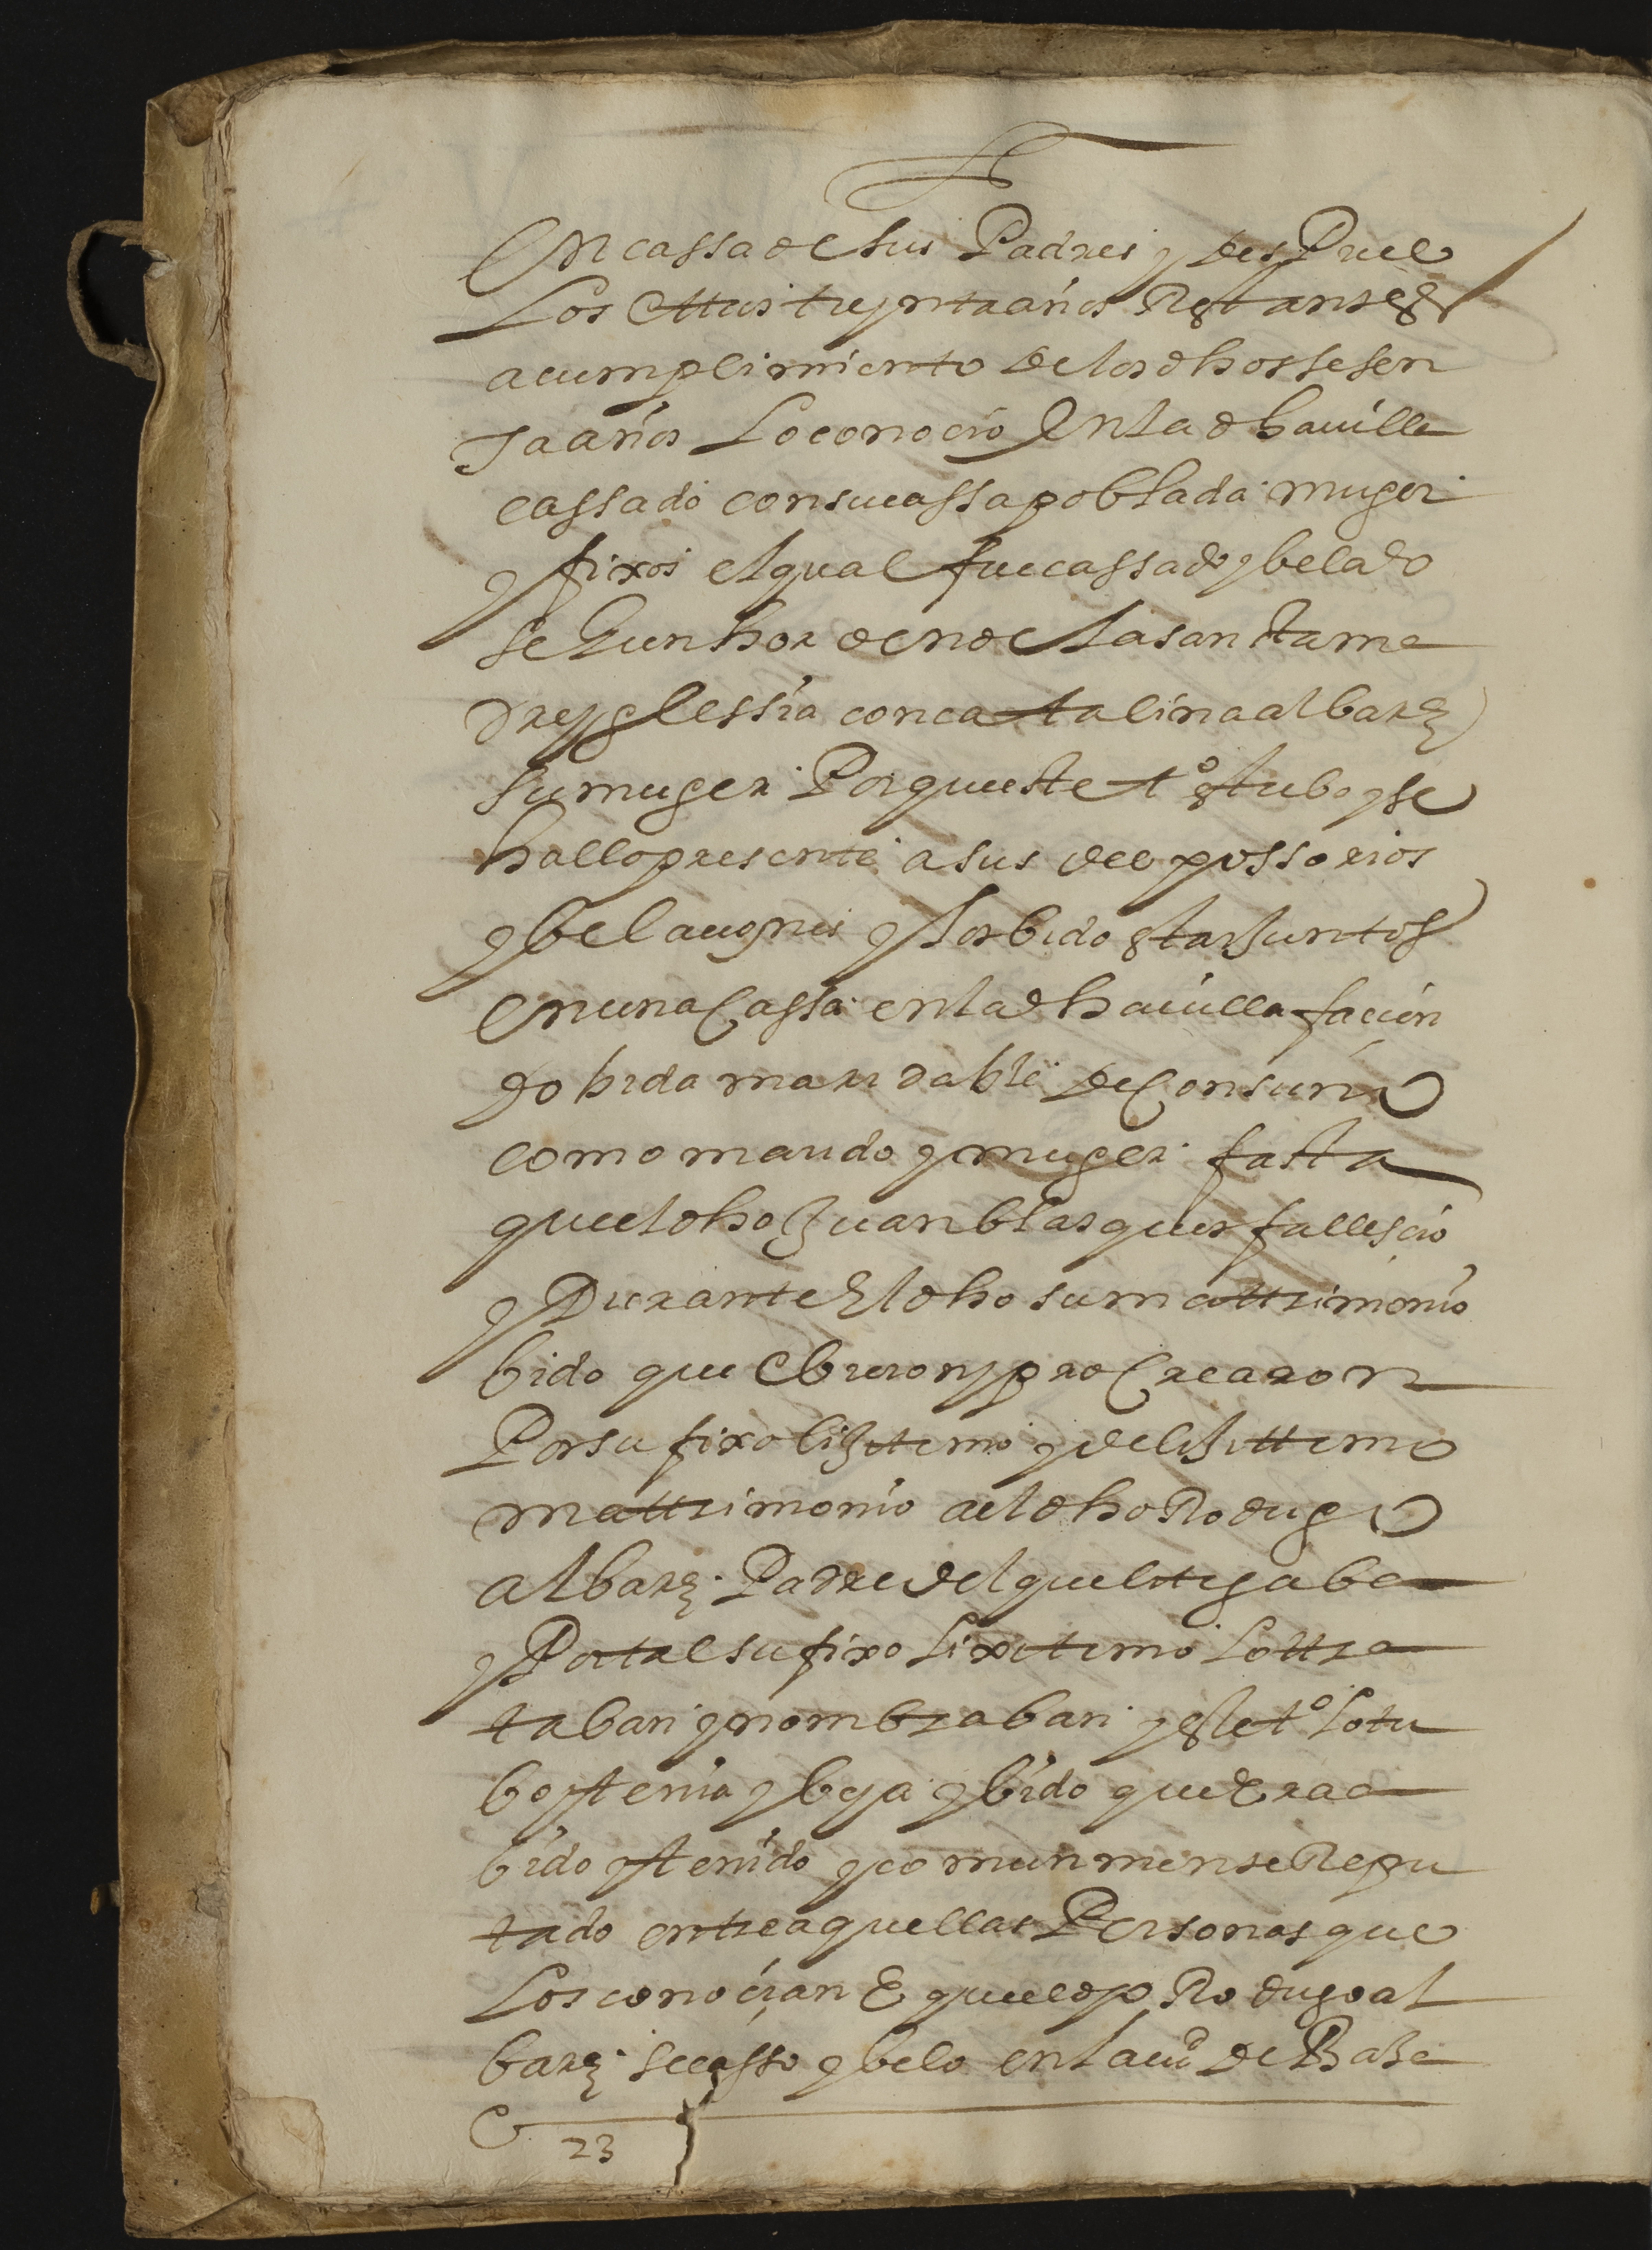 En cassa de sus Padres y desPues
Los ottros treynta años Restantes
a cumplimiento de los dhos sesen
ta años Lo conocio En la dha uilla
cassado con su cassa poblada muger
y fixos el qual fue cassado y belado
segun horden de la santa ma
dre yglessia con catalina albarz
su muger Porque este to estubo y se
hallo presente a sus desposorios
y belaciones y los bido estar Juntos
En una Cassa en la dha uilla facien
do bida maridable de Consuno
como marido y muger fasta
que el dho Juan blasques fallescio
y Durante El dho su mattrimonio
bido que obieron y proCrearon
Por su fixo lijitimo y de lijittimo
mattrimonio a el dho Rodrigo
albarz Padre del que litigaba
y Por tal su fixo lixitimo lo ttra
taban y nombraban y este to lo tu
bo y tenia y beya y bido que Era a
bido y tenido y comunmense Repu
tado entre aquellas Personas que
Los conocian E que el dho Rodrigo al
barz se casso y belo en la ciud de Baesa
23